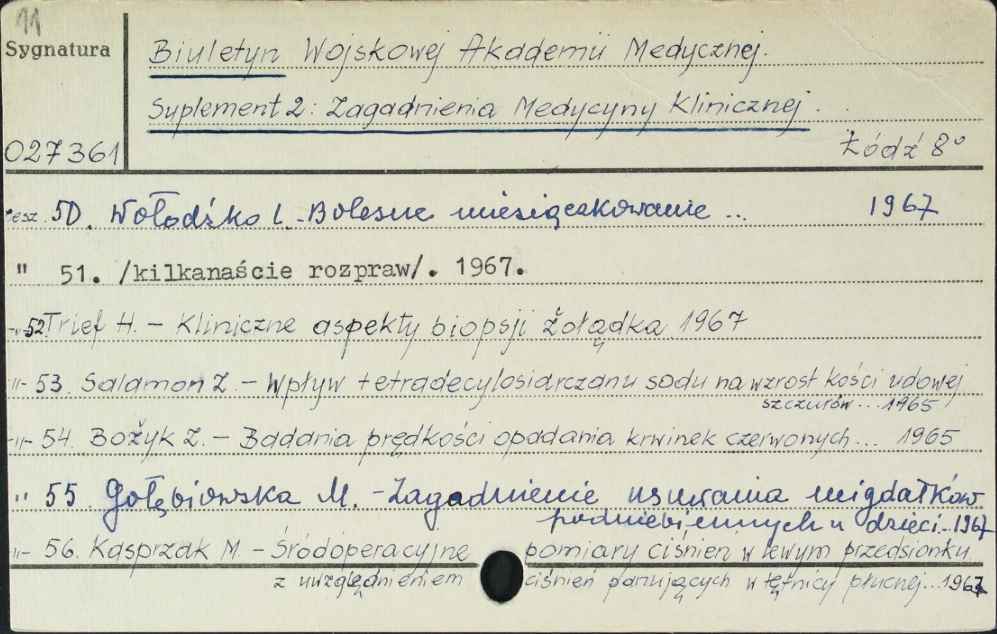 11
Sygnatura
Biuletyn Wojskowej Akademii Medycznej.
Suplement 2: Zagadnienia Medycyny Klinicznej.
027361
Łódź 8°
zesz. 50. Wołodźko L. - Bolesne miesiączkowanie ... 1967
" 51. /kilkanaście rozpraw/. 1967.
-"- 52 Trief H. - Kliniczne aspekty biopsji żołądka 1967
-"- 53. Salamon Z. - Wpływ tetradecylosiarczanu sodu na wzrost kości udowej
szczurów... 1965
-"- 54. Bożyk Z. - Badania prędkości opadania krwinek czerwonych... 1965
" 55. Gołębiowska M. - Zagadnienie usuwania migdałków
podniebiennych u dzieci.. 1967
-"- 56. Kasprzak M - Śródoperacyjne pomiary ciśnień w lewym przedsionku
z uwzględnieniem ciśnień panujących w tętnicy płucnej... 1967